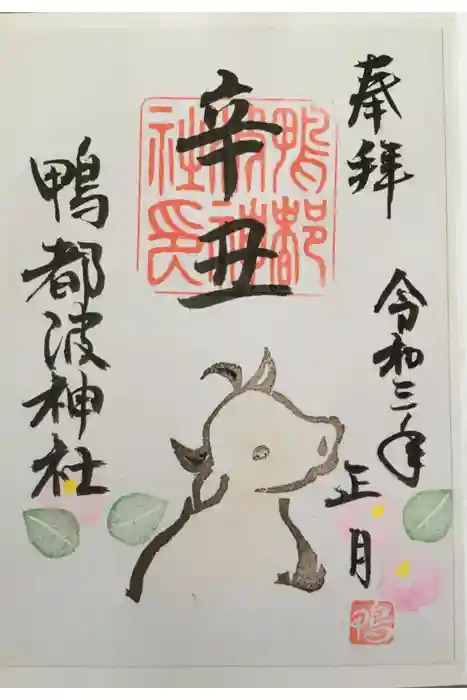 奉拝
令和三年
正月
辛丑
鴨都波神社
鴨都波神社長印
鴨